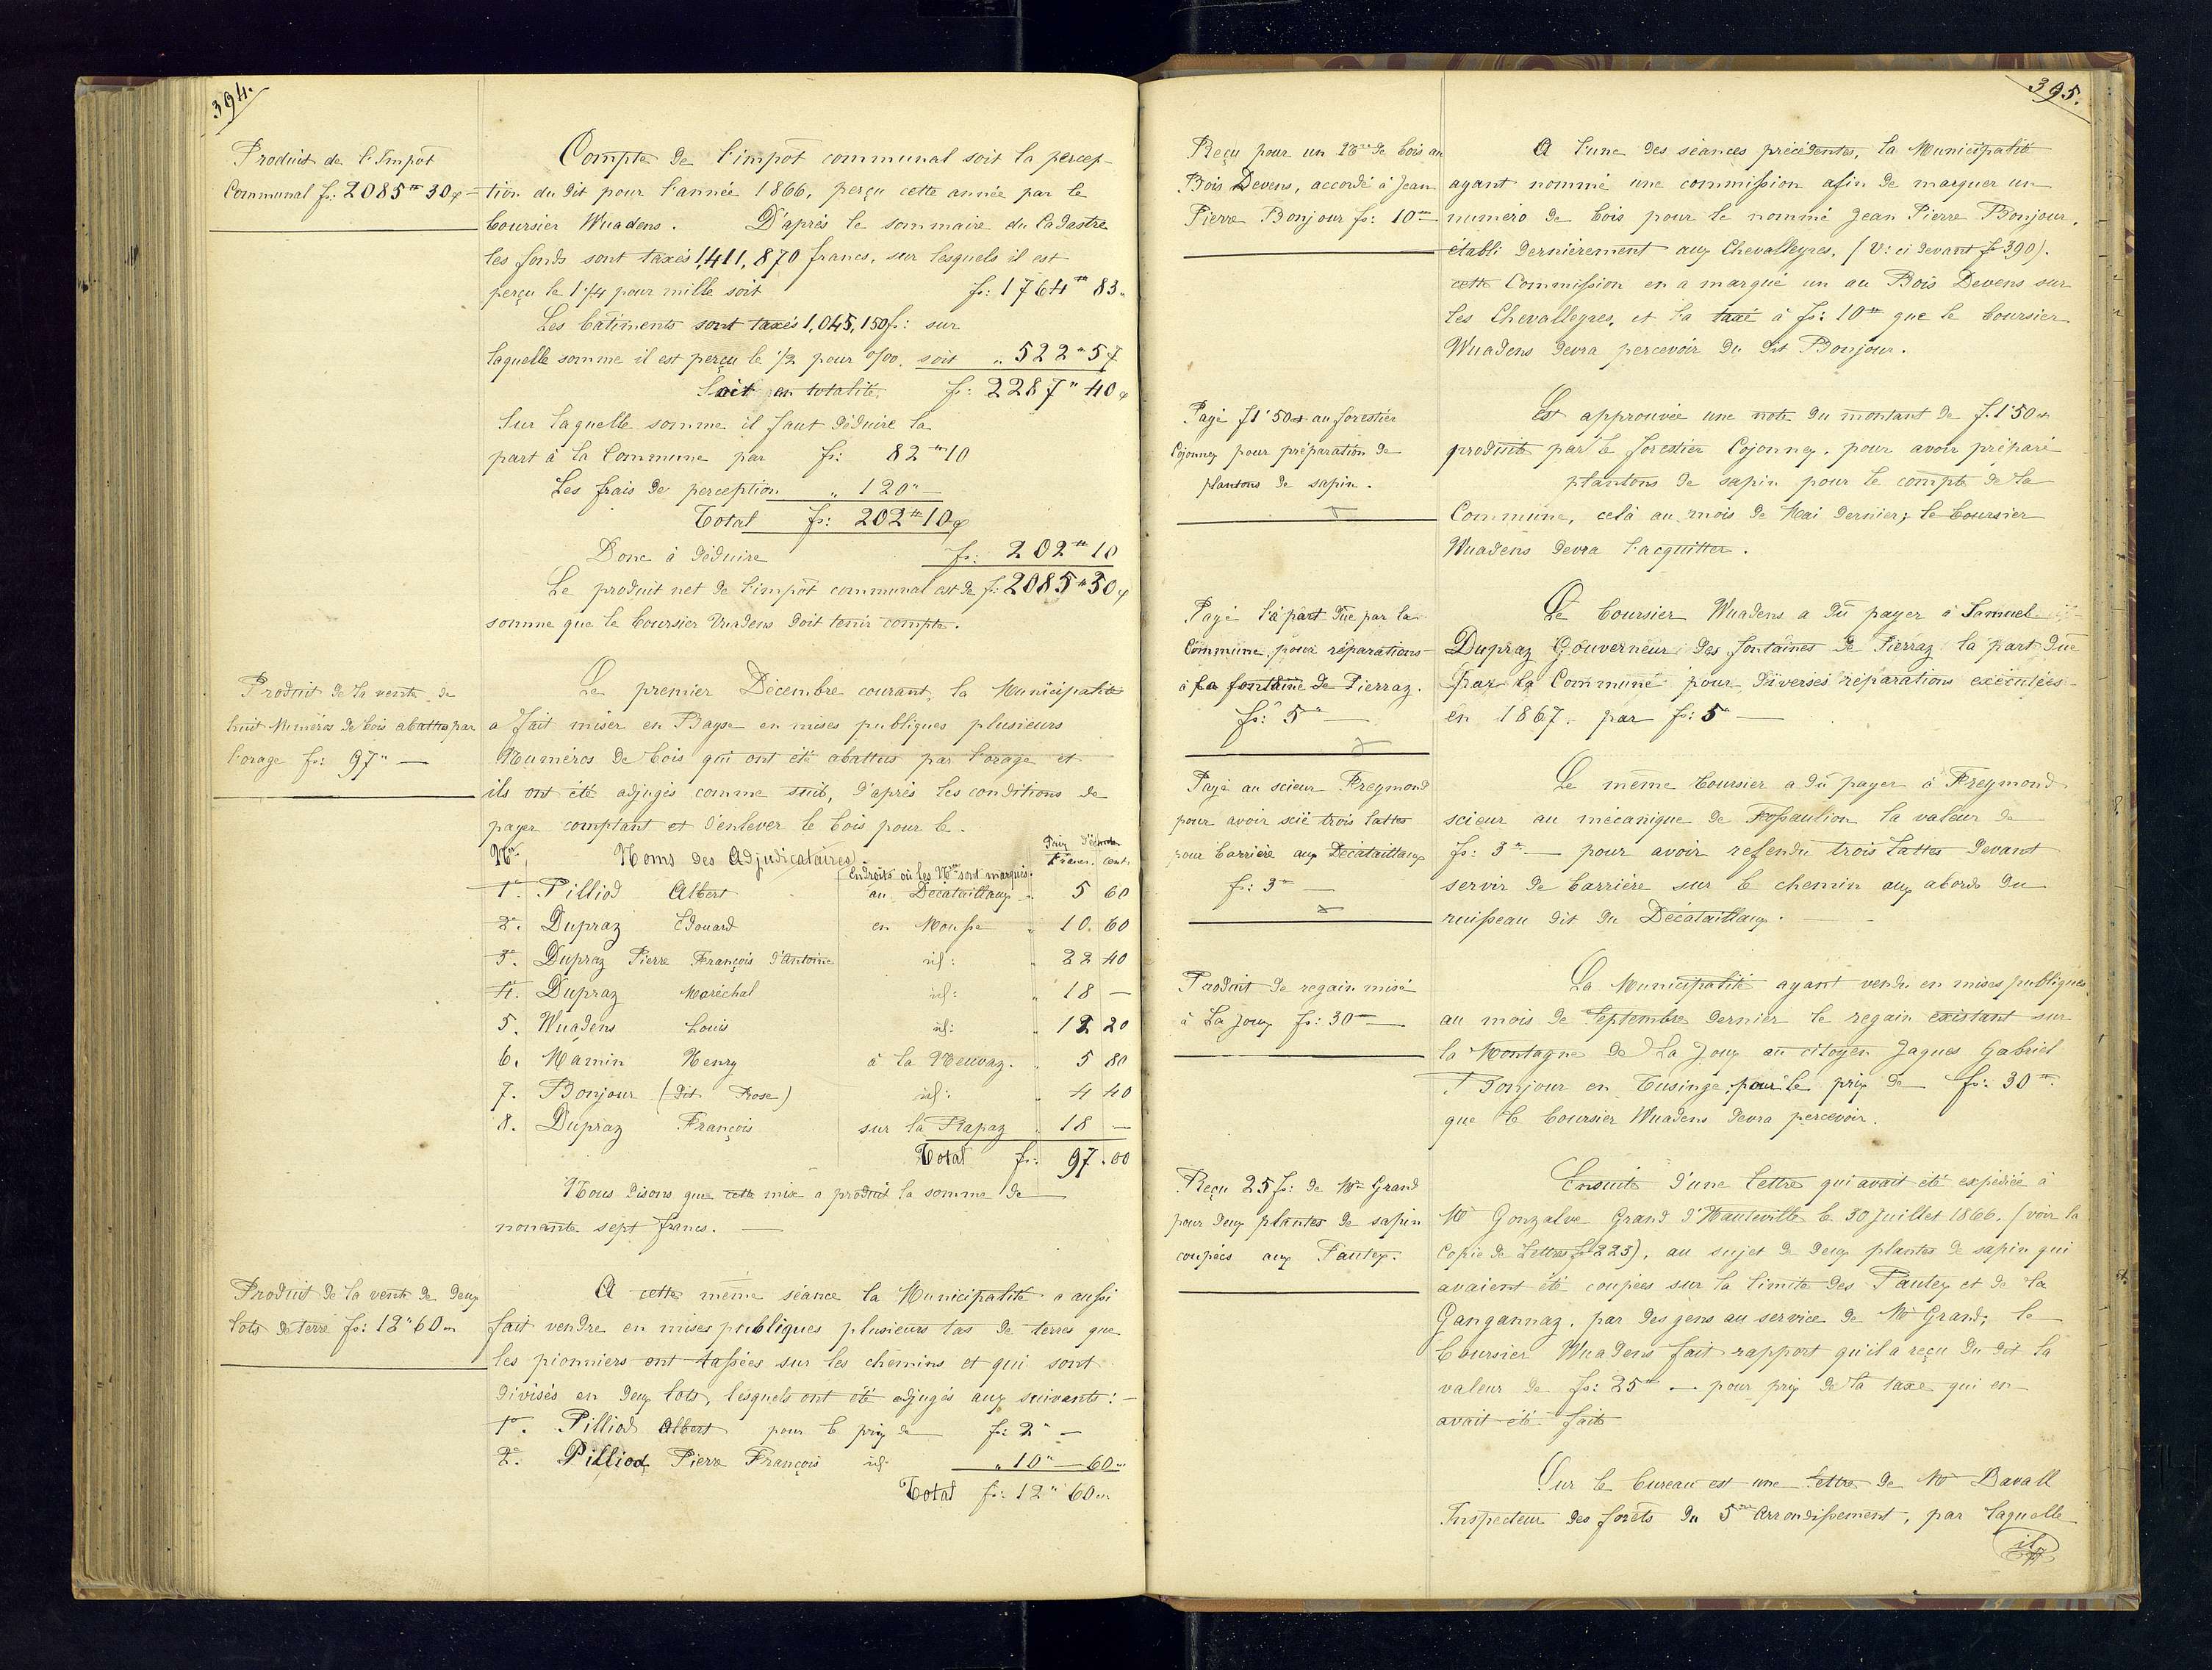 394.
Produit de l'Impôt
Communal fr: 2085" 30 c
Compte de l'impôt communal soit la percep-
tion du dit pour l'année 1866, perçu cette année par le
boursier Wuadens. D'après le sommaire du Cadastre
les fonds sont taxés 1,411,870 francs, sur lesquels il est
perçu le 1 1/4 pour mille soit fr: 1764" 83.
Les bâtiments sont taxés 1,045,150 fr: sur
laquelle somme il est perçu le 1/2 pour 0/00. soit " 522" 57
Soit en totalité. fr: 2287" 40 c
Sur laquelle somme il faut déduire la
part à la Commune par fr: 82" 10
Les frais de perception " 120" —
Total fr: 202" 10 c
Donc à déduire fr: 202" 10
Le produit net de l'impôt communal est de f: 2085" 30 c
somme que le boursier Wuadens doit tenir compte.
Produit de la vente de
huit Numéros de bois abattus par
l'orage fr: 97" —
Le premier Décembre courant, la Municipalité
a fait miser en Bayse en mises publiques plusieurs
Numéros de bois qui ont été abattus par l'orage et
ils ont été adjugés comme suit, d'après les conditions de
payer comptant et d'enlever le bois pour le.
Nos Noms des Adjudicataires. Endroits où les Nos sont marqués. Prix Francs. cent.
1°. Pilliod Albert au Décataillaux " 5 60
2°. Dupraz Edouard en Mousse " 10. 60
3°. Dupraz Pierre François d'Antoine id: " 22 40
4. Dupraz Maréchal id: " 18 —
5. Wuadens Louis id: " 12 20
6. Mamin Henry à la Neuvaz. " 5 80
7. Bonjour (dit Rose) id: " 4 40
8. Dupraz François sur la Rapaz " 18 —
Total fr: 97.00
Nous disons que cette mise a produit la somme de
nonante sept francs. —
Produit de la vente de deux
lots de terre fr: 12" 60 c
A cette même séance la Municipalité a aussi
fait vendre en mises publiques plusieurs tas de terres que
les pionniers ont tassées sur les chemins et qui sont
divisés en deux lots, lesquels ont été adjugés aux suivants: —
1°. Pilliod Albert pour le prix de fr: 2" —
2°. Pilliod Pierre François id: " 10" — 60
Total fr: 12" 60
395.
Reçu pour un No de bois au
Bois Devens, accordé à Jean
Pierre Bonjour fr: 10" —
A l'une des séances précédentes, la Municipalité
ayant nommé une commission afin de marquer un
numéro de bois pour le nommé Jean Pierre Bonjour,
établi dernièrement aux Chevalleyres, (V: ci devant fo 390).
cette Commission en a marqué un au Bois Devens sur
les Chevalleyres, et l'a taxé à fr: 10" que le boursier
Wuadens devra percevoir du dit Bonjour.
Payé f 1" 50 ct au forestier
Cojonney pour préparation de
plantons de sapin.
Est approuvée une note du montant de f. 1" 50 ct
produite par le forestier Cojonney, pour avoir préparé
plantons de sapin pour le compte de la
Commune, celà au mois de Mai dernier; le boursier
Wuadens devra l'acquitter.
Payé la part dûe par la
Commune pour réparations
à la fontaine de Pierraz.
fr: 5" —
Le boursier Wuadens a dû payer à Samuel
Dupraz Gouverneur des fontaines de Pierraz la part dûe
par la Commune pour diverses réparations exécutées
en 1867. par fr: 5" —
Payé au scieur Freymond
pour avoir scié trois lattes
pour barrière aux Décataillaux
fr: 3" —
Le même boursier a dû payer à Freymond
scieur au mécanique de Fossaulion la valeur de
fr: 3" — pour avoir refendu trois lattes devant
servir de barrière sur le chemin aux abords du
ruisseau dit du Décataillaux. —
Produit de regain misé
à La Joux fr: 30" —
La Municipalité ayant vendu en mises publiques
au mois de Septembre dernier le regain existant sur
la Montagne de La Joux au citoyen Jaques Gabriel
Bonjour en Tusinge, pour le prix de fr: 30".
que le boursier Wuadens devra percevoir.
Reçu 25 fr: de Mr Grand
pour deux plantes de sapin
coupées aux Pauley.
Ensuite d'une lettre qui avait été expédiée à
Mr Gonzalve Grand d'Hauteville le 30 Juillet 1866. (voir la
Copie de Lettres fo 223), au sujet de deux plantes de sapin qui
avaient été coupées sur la limite des Pauley et de la
Gangannaz, par des gens au service de Mr Grand; le
boursier Wuadens fait rapport qu'il a reçu du dit la
valeur de fr: 25" — pour prix de la taxe qui en
avait été fait
Sur le bureau est une lettre de Mr Davall
Inspecteur des forêts du 5me Arrondissement, par laquelle
il